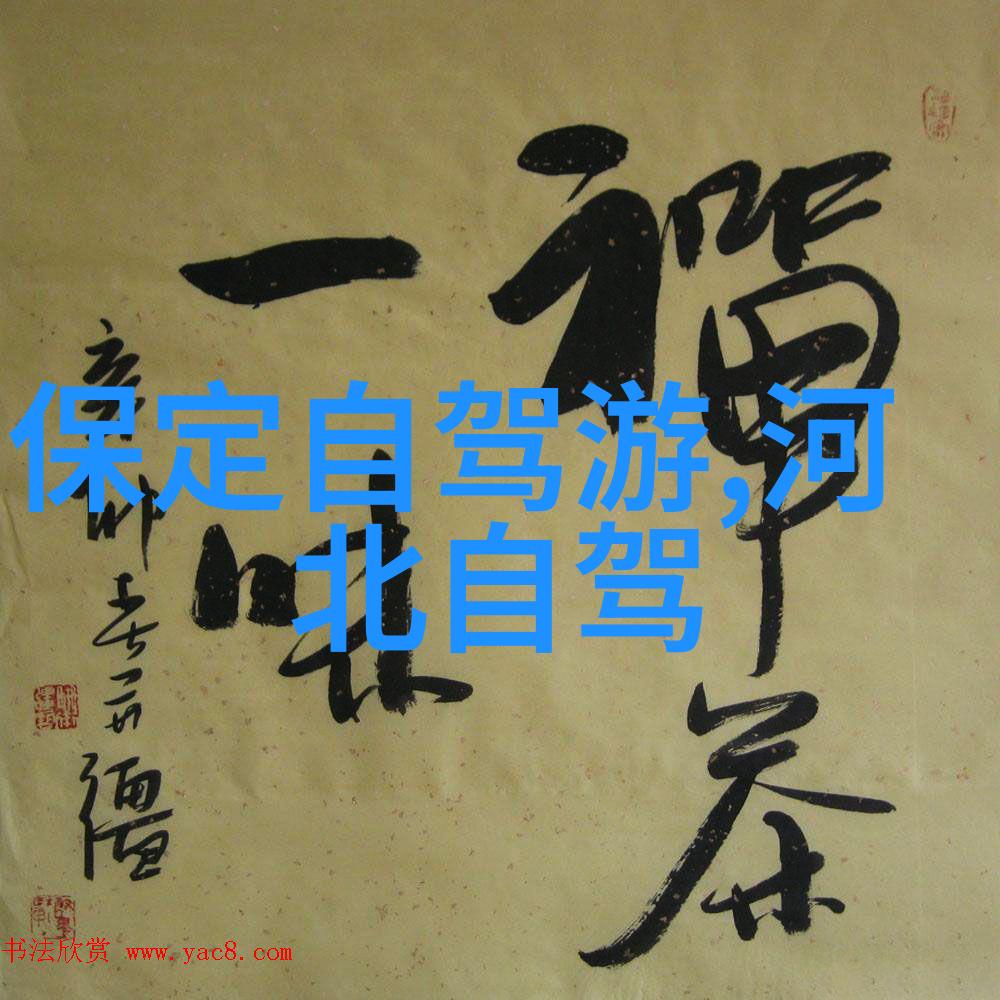 禪茶
一味
辛卯春一丹
保定自驾游,河
北自驾
书法欣赏 www.yac8.com